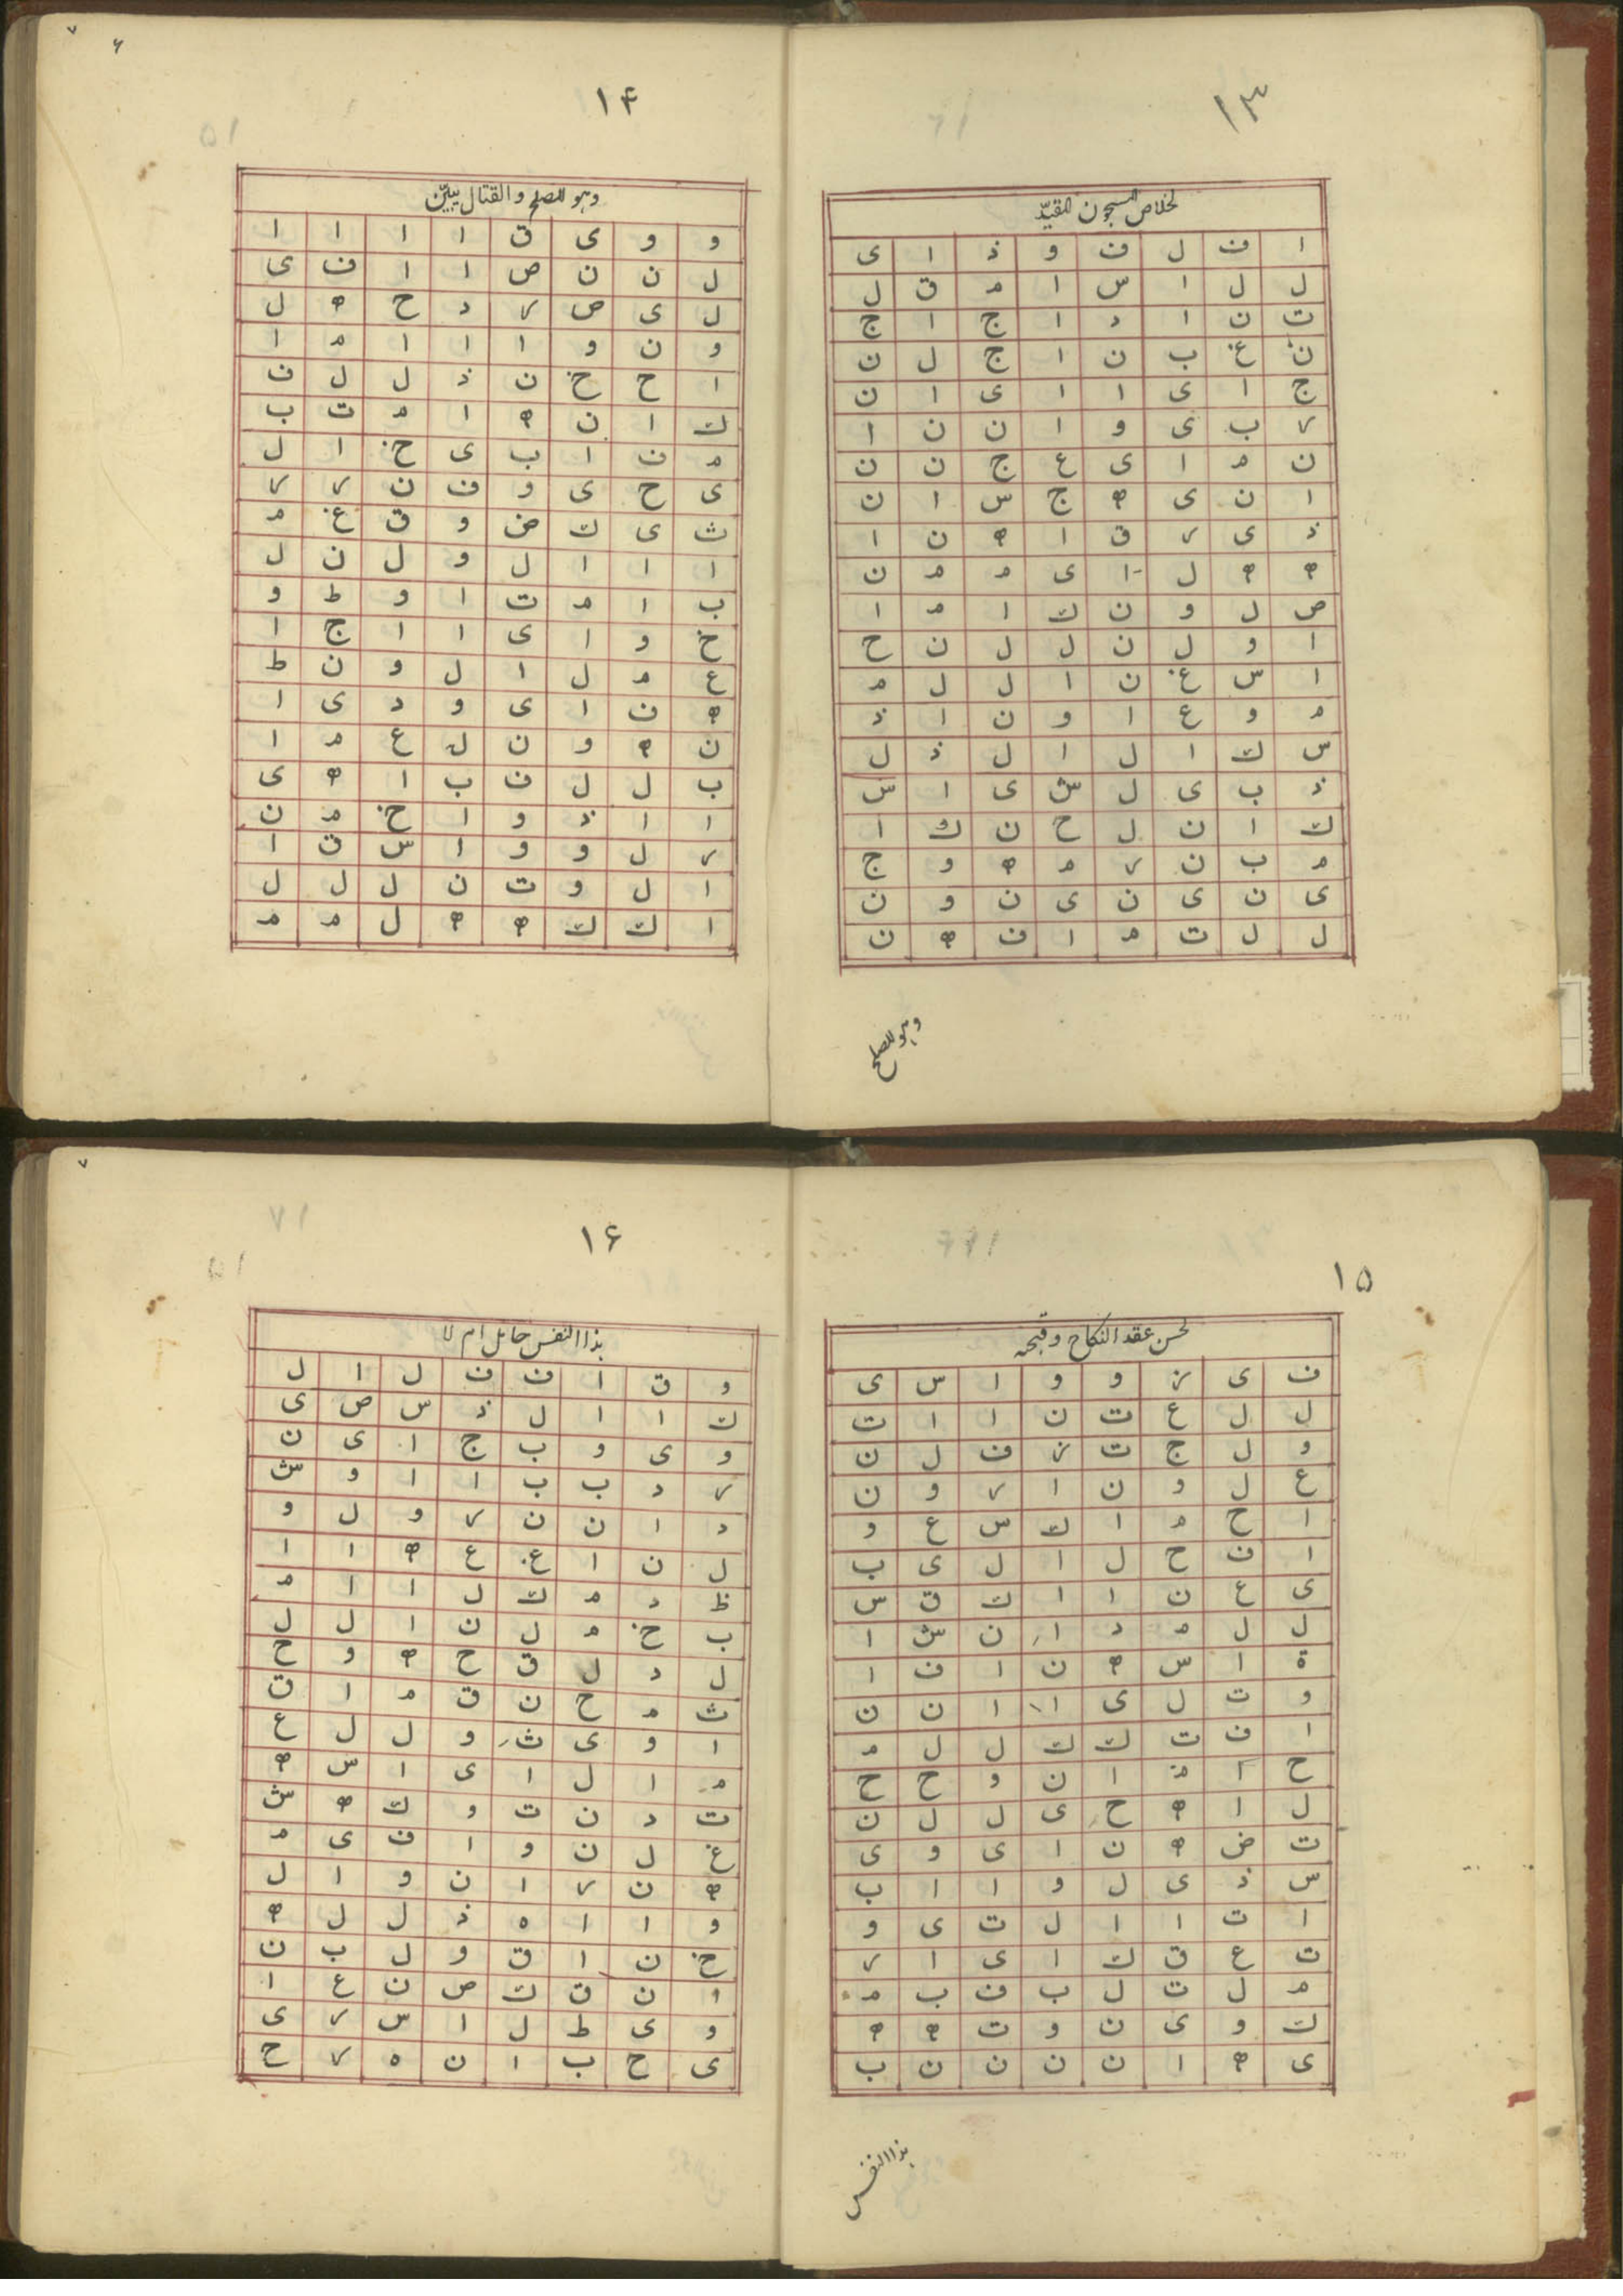 ١٣
لخلاص المسجون المقيّد
ا ف ل ف و ذ ا ى
ل ل ا س ا م ق ل
ت ن ا د ا ج ا ج
ن غ ب ن ا ج ل ن
ج ا ى ا ا ى ا ن
ر ب ى و ا ن ن ا
ن م ا ى ع ج ن ن
ا ن ى ه ج س ا ن
ذ ى ر ق ا ه ن ا
ه ه ل ا ى م م ن
ص ل و ن ك ا م ا
ا و ل ن ل ل ن ح
ا س غ ن ا ل ل م
م و ع ا و ن ا ذ
س ك ا ل ا ل ذ ل
ذ ب ى ل ش ى ا س
ك ا ن ل ح ن ك ا
م ب ن ر م ه و ج
ى ن ى ن ى ن و ن
ل ل ت م ا ف ه ن
وهو للصلح
١۴
وهو للصلح والقتال يبيّن
و و ى ق ا ا ا ا
ل ن ن ص ا ا ف ى
ل ى ص ر د ح ه ل
و ن و ا ا ا م ا
ا ح خ ن ذ ل ل ف
ك ا ن ه ا م ت ب
م ف ا ب ى خ ا ل
ى ح ى و ف ن ر ر
ث ى ك ض و ق غ م
ا ا ا ل و ل ن ل
ب ا م ت ا و ط و
خ و ا ى ا ا ج ا
ع م ل ا ل و ن ط
ه ف ا ى و د ى ا
ن ه و ن ل ع م ا
ب ل ل ف ب ا ه ى
ا ا ذ و ا خ م ن
ر ل و و ا س ق ا
ا ل و ت ن ل ل ل
ا ك ك ه ه ل م م
١۵
لحسن عقد النكاح وقبحه
ف ى ز و و ا س ى
ل ل ع ت ن ا ا ت
و ل ج ت ز ف ل ن
ع ل و ن ا ر و ن
ا ح م ا ك س ع و
ا ف ح ل ا ل ى ب
ى ع ن ا ا ك ق س
ل ل م د ا ن ش ا
ة ا س ه ن ا ف ا
و ت ل ى ا ا ن ن
ا ف ت ك ك ل ل م
ح ا ذ ا ن و ح ح
ل ا ه ح ى ل ل ن
ت ض ه ن ا ى و ى
س ذ ى ل و ا ا ب
ا ت ا ا ل ت ى و
ت ع ق ك ا ى ا ر
م ل ت ل ب ف ب م
ك و ى ن و ت ه ه
ى ه ا ن ن ن ن ب
هذا النفس
١۶
هذا النفس حامل ام لا
و ق ا ف ف ل ا ل
ك ا ا ل ذ س ص ى
و ى و ب ج ا ى ن
ر د ب ب ا ا و ش
د ا ن ن ر و ل و
ل ن ا غ ع ه ا ا
ظ د م ك ل ا ا م
ب خ م ل ن ا ل ل
ل د ل ق ح ه و ح
ث م ح ن ق م ا ق
ا و ى ث و ل ل ع
م ا ل ا ى ا س ه
ت د ن ت و ك ه ش
غ ل ن و ا ف ى م
ه ن ر ا ن و ا ل
و ا ا ه ذ ل ل ه
خ ن ا ق و ل ب ن
ا ن ق ك ص ن ع ا
و ى ط ل ا س ر ى
ى ح ب ا ن ه ر ح